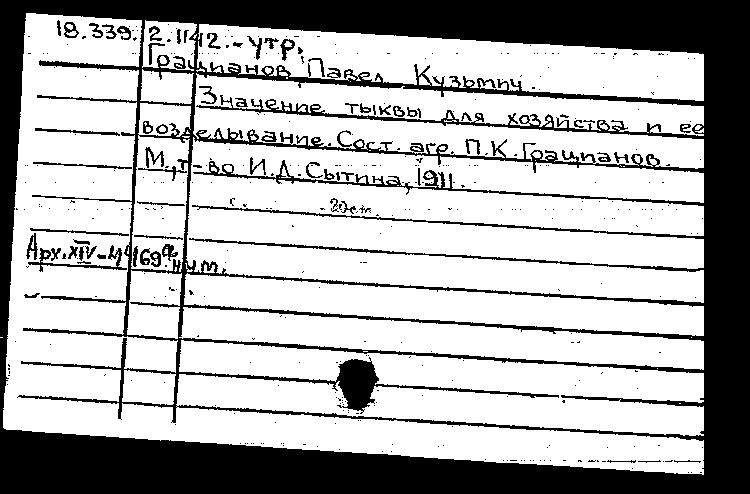 18.339.2.1142.-утр.
Грацианов, Павел Кузьмич.
Значение тыквы для хозяйства и ее
возделывание. Сост. агр. П.К. Грацианов.
М., т-во И.Д. Сытина, 1911.
с. 20см.
Арх. XIV-